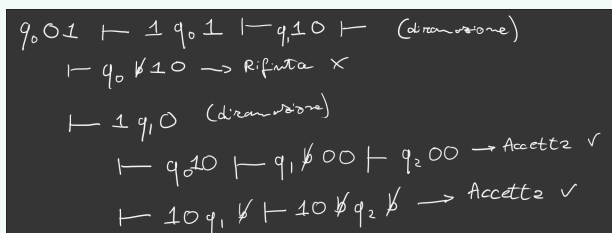 q₀01 ⊢ 1q₀1 ⊢ q₁10 ⊢ (diramazione)
⊢ q₀ƀ10 → Rifiuta ×
⊢ 1q₁0 (diramazione)
⊢ q₀10 ⊢ q₁ƀ00 ⊢ q₂00 → Accetta ✓
⊢ 10q₁ƀ ⊢ 10ƀq₂ƀ → Accetta ✓